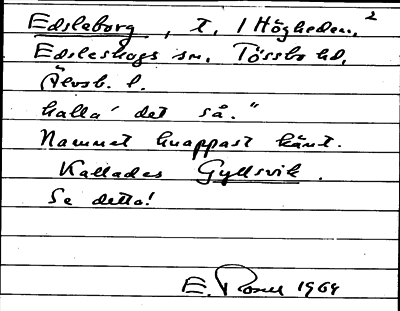 Edsleborg, t. 1 Högheden. 2
Edsleskogs sn. Tössbo hd.
Älvsb. l.
kalla' det så."
Namnet knappast känt.
Kallades Gyllsvik.
Se detta!
E. 1969